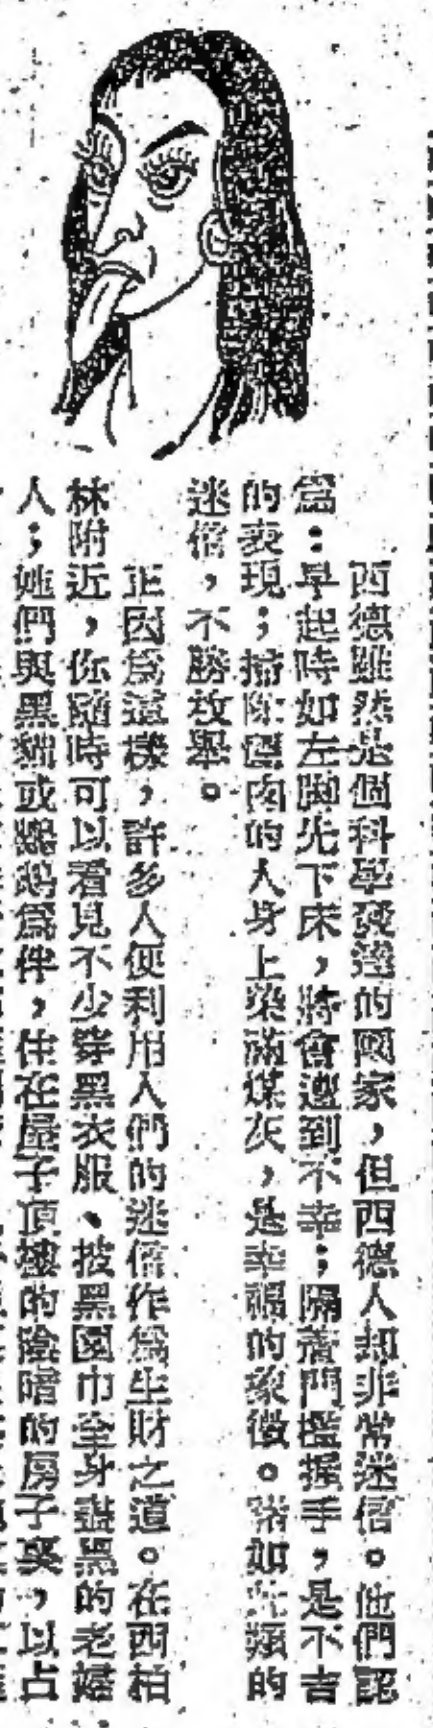 西德雖然是個科學發達的國家，但西德人却非常迷信。他們認
爲：早起時如左脚先下床，將會遭到不幸；隔着門檻握手，是不吉
的表現；掃除烟囱的人身上染滿煤灰，是幸福的象徵。諸如此類的
迷信，不勝枚舉。
正因爲這樣，許多人便利用人們的迷信作爲生財之道。在西柏
林附近，你隨時可以看見不少穿黑衣服、披黑圍巾全身盡黑的老婦
人；她們與黑貓或鸚鵡爲伴，住在屋子頂樓的陰暗的房子裏，以占